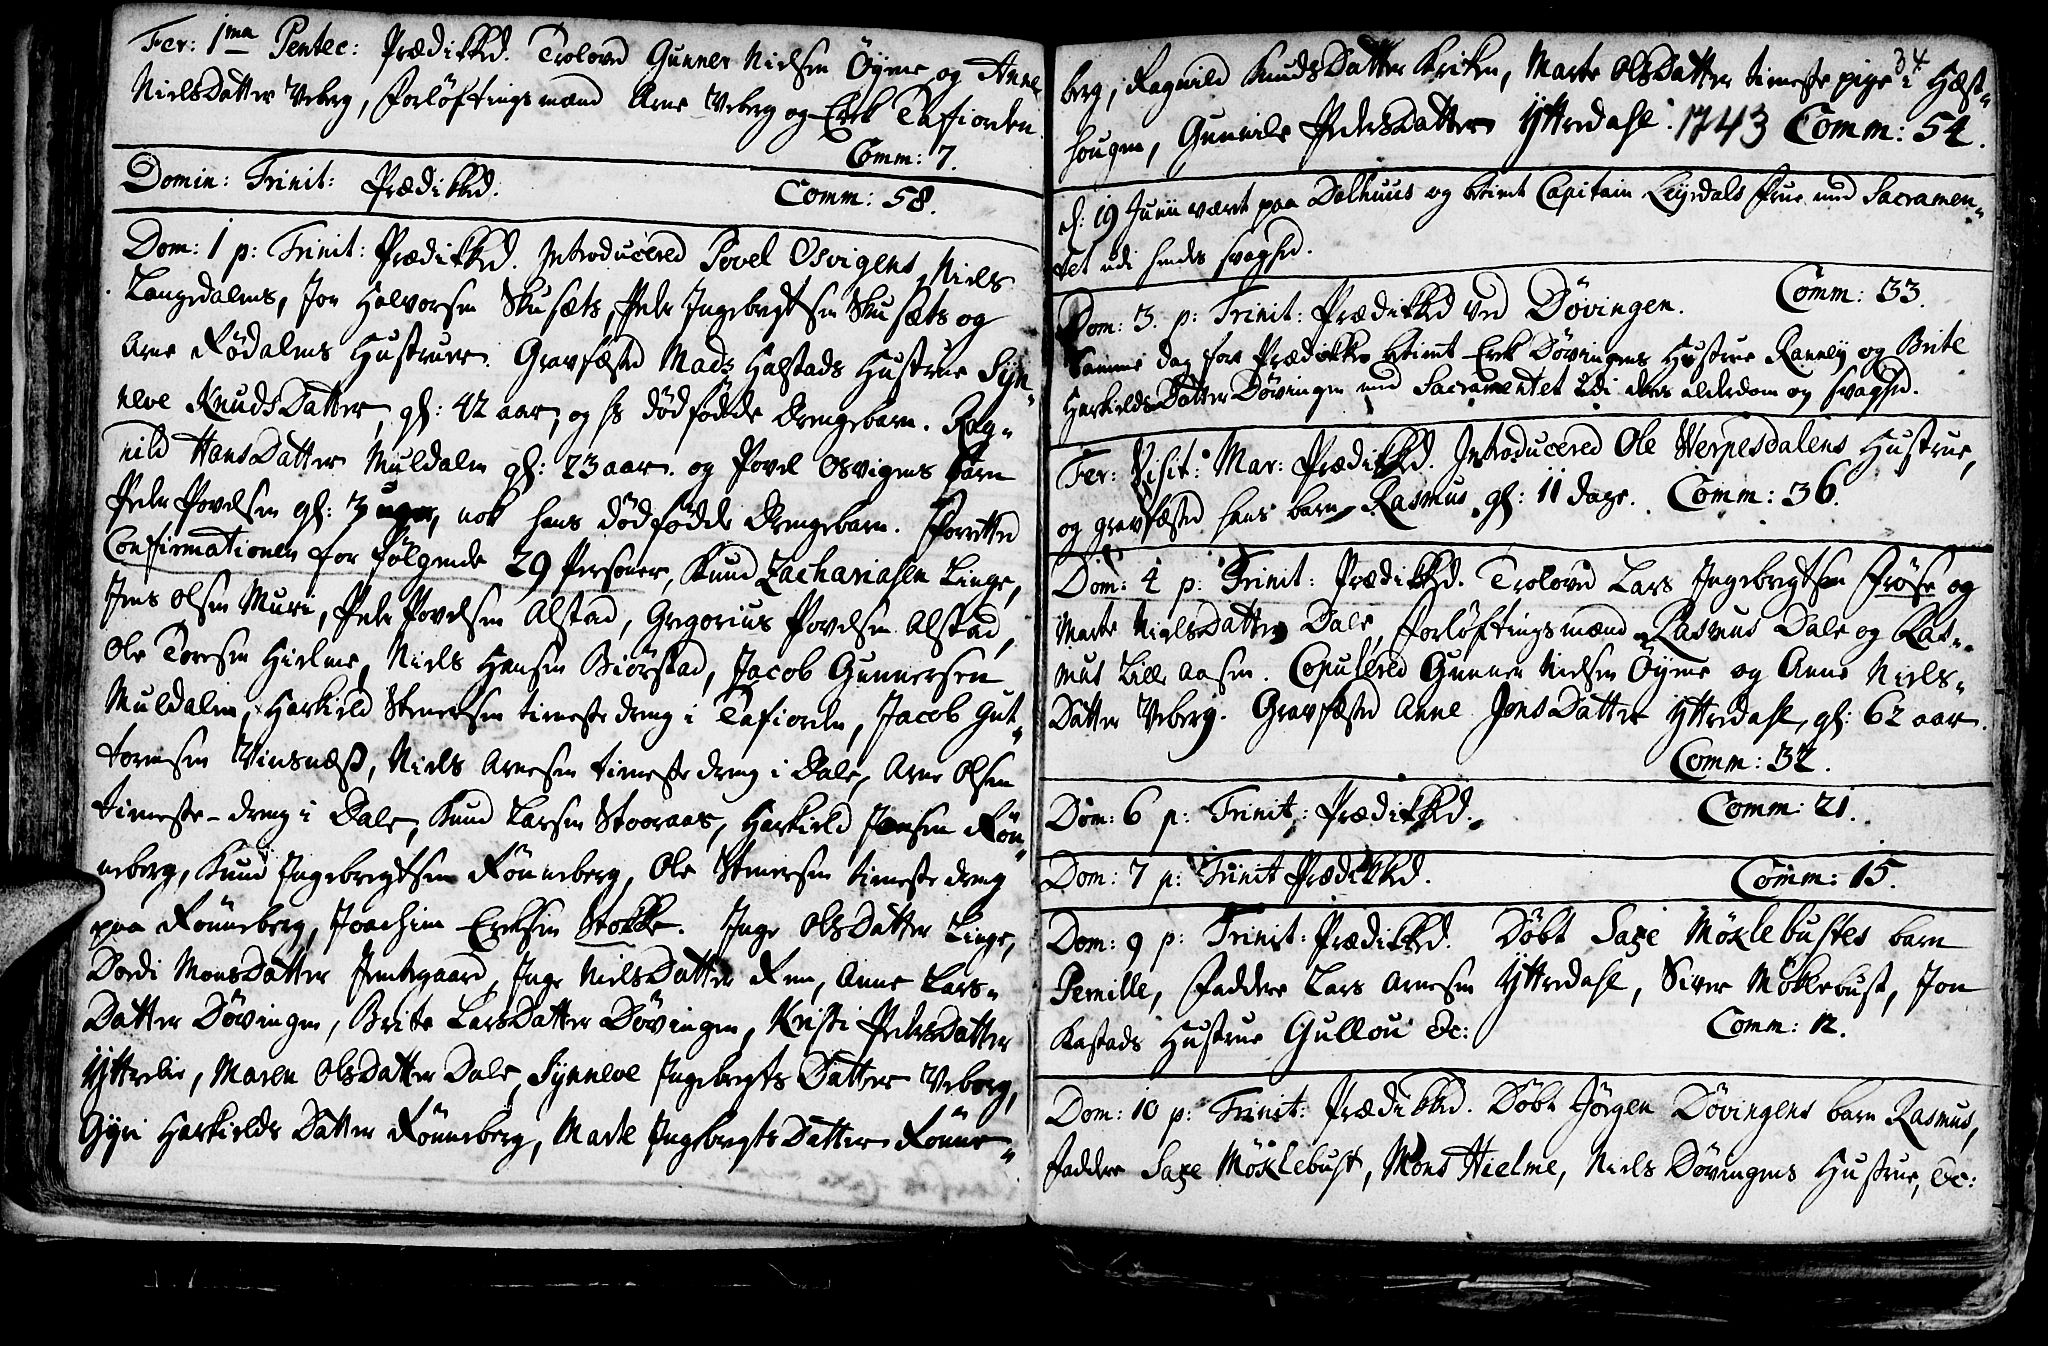 Fer: 1ma Pentec: Prædikked. Trolovd Gunner Nielsen Öyene og Anne
NielsDatter Veberg, Forlöftingsmænd Arne Veberg og Erek Tafiorden.
Comm: 7.
Domin: Trinit: Prædikked. Comm: 58.
Dom: 1 p: Trinit: Prædikked. Introducered Povel Osvigens, Niels
Langedalens, Jon Halvorsen Skusæts, Peder Ingebregtsen Skusæts og
Arne Rödalens Hustruer. Gravfæsted Mads Halstads Hustrue Syn-
neve KnudsDatter gl: 42 aar, og hs dödfödde drengebarn. Rag-
nild HansDatter Muldalen gl: 23 aar. og Povel Osvigens barn
Peder Povelsen gl: 3 uger, nok hans dödfödde drengebarn. Forretted
Confirmationen for fölgende 29 Personer, Knud Zachariasen Linge,
Jens Olsen Muri, Peder Povelsen Alstad, Gregorius Povelsen Alstad,
Ole Toresen Hielme, Niels Hansen Biörstad, Jacob Gunnersen
Muldalen, Harkield Stenersen tieneste dreng i Tafiorden, Jacob Gut-
tormsen Vinsnæss, Niels Arnesen tieneste dreng i Dale, Arne Olsen
tieneste-dreng i Dale, Knud Larsen Stooraas, Harkield Jensen Rön-
neberg, Knud Ingebregtsen Rönneberg, Ole Stenersen tieneste dreng
paa Rönneberg, Joachim Ereksen Stokke. Inge OlsDatter Linge,
Dordi MonsDatter Jemtegaard, Inge NielsDatter Rem, Anne Lars-
Datter Dövingen, Brite LarsDatter Dövingen, Kristi PedersDatter
Ytterlie, Maren OlsDatter Dale, Synneve IngebregtsDatter Veberg,
Gyri HarkieldsDatter Rönneberg, Marte IngebregtsDatter Rönne-
34
berg, Ragnild KnudsDatter Kriken, Marte OlsDatter tieneste pige i Hæst-
hougen, Gunnild PedersDatter Yttredahl. 1743 Comm: 54.
d: 19 Junii været paa Dalhuus og betient Capitain Leyrdals Frue med Sacramen-
tet udi hendes svaghed.
Dom: 3. p: Trinit: Prædikked ved Dövingen. Comm: 33.
Samme dag for Prædikken betient Erek Dövingens Hustrue Ranney og Brite
HarkieldsDatter Dövingen med Sacramentet udi deres alderdom og svaghed.
Fer: Visit: Mar: Prædikked. Introducered Ole Herpesdalens Hustrue,
og gravfæsted hans barn Rasmus gl: 11 dage. Comm: 36.
Dom: 4 p: Trinit: Prædikked. Trolovd Lars Ingebregtsen Fröse og
Marte NielsDatter Dale, Forlöftingsmænd Rasmus Dale og Ras-
mus Lille Aasen. Copulered Gunner Nielsen Öyene og Anne Niels-
Datter Veberg. Gravfæsted Anne JonsDatter Yttredahl, gl: 62 aar.
Comm: 32.
Dom: 6 p: Trinit: Prædikked. Comm: 21.
Dom: 7 p: Trinit Prædikked. Comm: 15.
Dom: 9 p: Trinit: Prædikked. Döbt Saxe Möklebustes barn
Pernille, Faddere Lars Arnesen Yttredahl, Siver Möklebust, Jon
Kastads Hustrue Gullou &c: Comm: 12.
Dom: 10 p: Trinit: Prædikked. Döbt Jörgen Dövingens barn Rasmus,
Faddere Saxe Möklebust, Mons Hielme, Niels Dövingens Hustrue, &c: